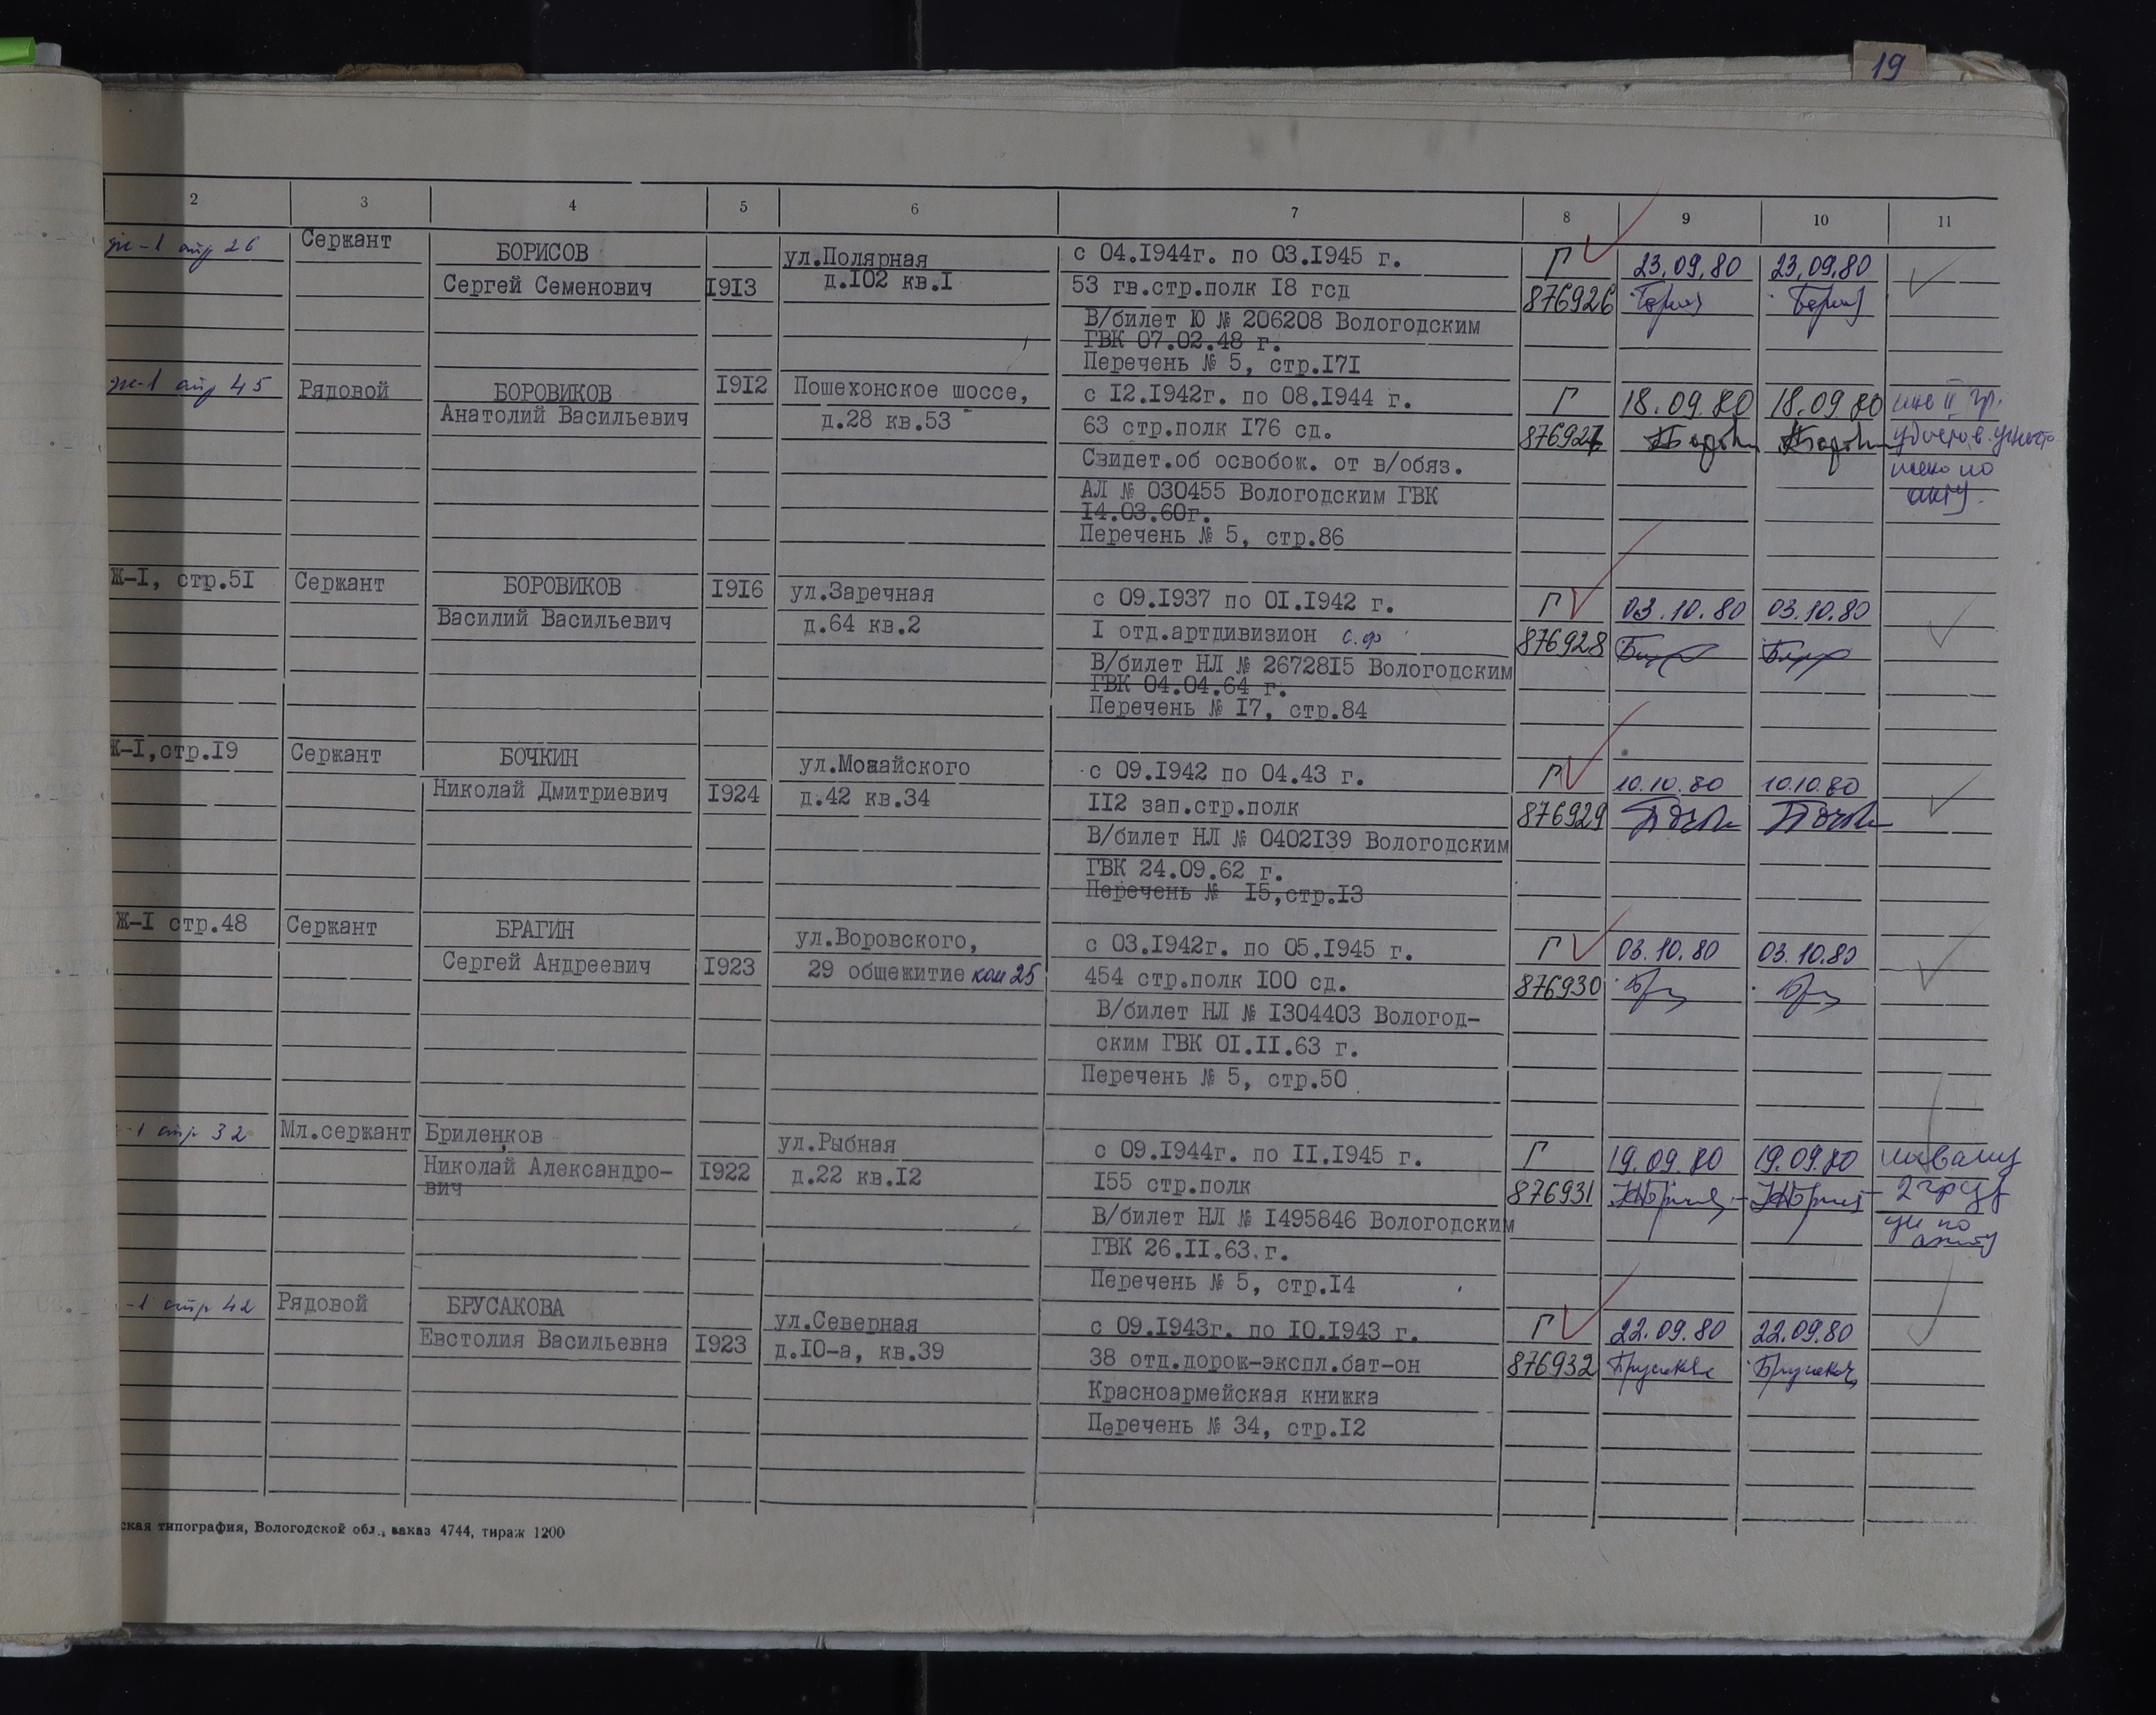 19
2 3 4 5 6 7 8 9 10 11
ж-1 стр 26 Сержант БОРИСОВ ул.Полярная с 04.1944г. по 03.1945 г. Г 23.09.80 23.09.80
Сергей Семенович 1913 д.102 кв.1 53 гв.стр.полк 18 гсд 876926
В/билет Ю № 206208 Вологодским
ГВК 07.02.48 г.
Перечень № 5, стр.171
ж-1 стр 45 Рядовой БОРОВИКОВ 1912 Пошехонское шоссе, с 12.1942г. по 08.1944 г. Г 18.09.80 18.09.80 инв II гр.
Анатолий Васильевич д.28 кв.53 63 стр.полк 176 сд. 876927 удостов. уничто
Свидет.об освобож. от в/обяз. жено по
АЛ № 030455 Вологодским ГВК акту.
14.03.60г.
Перечень № 5, стр.86
Ж-1, стр.51 Сержант БОРОВИКОВ 1916 ул.Заречная с 09.1937 по 01.1942 г. Г 03.10.80 03.10.80
Василий Васильевич д.64 кв.2 1 отд.артдивизион с.ф 876928
В/билет НЛ № 2672815 Вологодским
ГВК 04.04.64 г.
Перечень № 17, стр.84
Ж-1,стр.19 Сержант БОЧКИН ул.Можайского с 09.1942 по 04.43 г. Г 10.10.80 10.10.80
Николай Дмитриевич 1924 д.42 кв.34 112 зап.стр.полк 876929
В/билет НЛ № 0402139 Вологодским
ГВК 24.09.62 г.
Перечень № 15,стр.13
Ж-1 стр.48 Сержант БРАГИН ул.Воровского, с 03.1942г. по 05.1945 г. Г 03.10.80 03.10.80
Сергей Андреевич 1923 29 общежитие ком 25 454 стр.полк 100 сд. 876930
В/билет НЛ № 1304403 Вологод-
ским ГВК 01.11.63 г.
Перечень № 5, стр.50
-1 стр 32 Мл.сержант Бриленков ул.Рыбная с 09.1944г. по 11.1945 г. Г 19.09.80 19.09.80
Николай Александро- 1922 д.22 кв.12 155 стр.полк 876931
вич
В/билет НЛ № 1495846 Вологодским ун по
ГВК 26.11.63.г. акту
Перечень № 5, стр.14
-1 стр 42 Рядовой БРУСАКОВА ул.Северная с 09.1943г. по 10.1943 г. Г 22.09.80 22.09.80
Евстолия Васильевна 1923 д.10-а, кв.39 38 отд.дорож-экспл.бат-он 876932
Красноармейская книжка
Перечень № 34, стр.12
ская типография, Вологодской обл., заказ 4744, тираж 1200